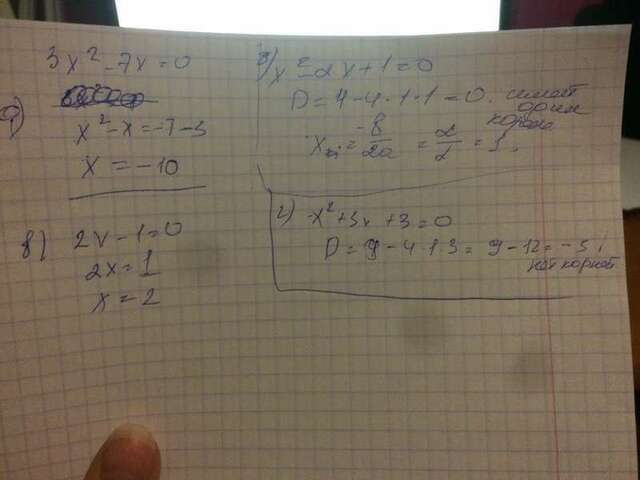 3x² - 7x = 0
x² - x = -7 - 3
x = -10
в) 2x - 1 = 0
2x = 1
x = 2
x² - 2x + 1 = 0
D = 4 - 4 · 1 · 1 = 0. имеет один корень
= -в/2a = 2/2 = 1.
г) x² + 3x + 3 = 0
D = 9 - 4 · 1 · 3 = 9 - 12 = -3;
нет корней